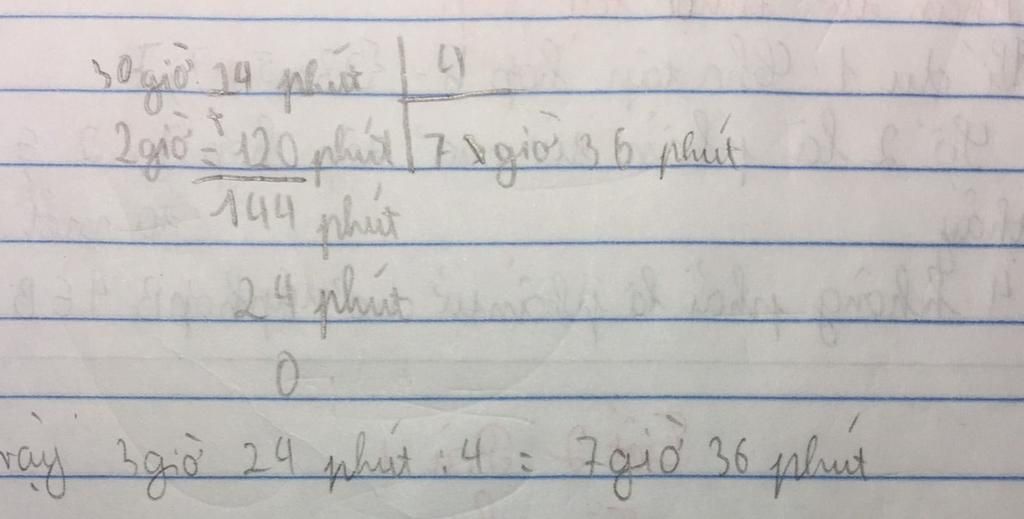 30 giờ 24 phút 4
2giờ = 120 phút 7 giờ 36 phút
+
144 phút
24 phút
0
vậy 3giờ 24 phút : 4 = 7giờ 36 phút